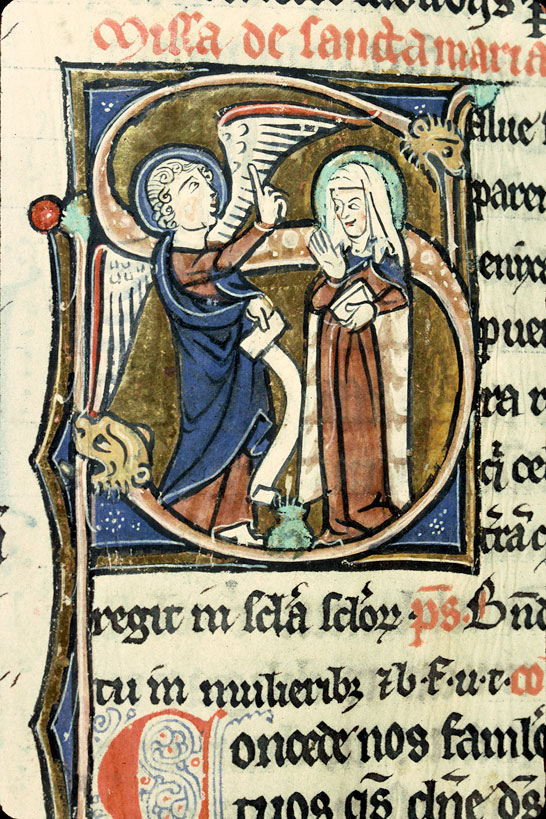 Missa de sancta maria
Salue
paren
enixa
puer
ra r
q̄ cel
t̄rāq
regit in sc̄lā sc̄lor̄ꝝ. p̄s. Bn̄d
tu in mulieribꝫ ⁊b.f.u.t. co
Concede nos famĺo
tuos q̄s dn̄e d̄s